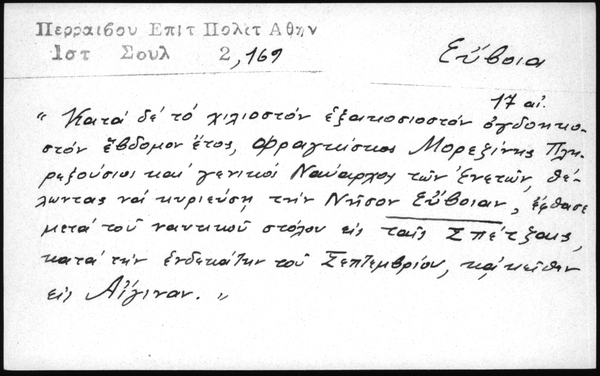 Περραιβου Επιτ Πολιτ Αθην
Ιστ Σουλ 2,169
Εὔβοια
17 αἰ.
"Κατά δέ τό χιλιοστόν ἑξακοσιοστόν ὀγδοηκο-
στόν ἕβδομον ἔτος, Φραγκίσκος Μορεζίνης Πλη-
ρεξούσιοι καί γενικοί Ναύαρχοι τῶν Ἐνετῶν, θέ-
λωντας νά κυριεύσῃ τήν Νῆσον Εὔβοιαν, ἔφθασε
μετά τοῦ ναυτικοῦ στόλου εἰς ταῖς Σπέτζαις,
κατά τήν ἑνδεκάτην τοῦ Σεπτεμβρίου, κᾀκεῖθεν
εἰς Αἴγιναν."